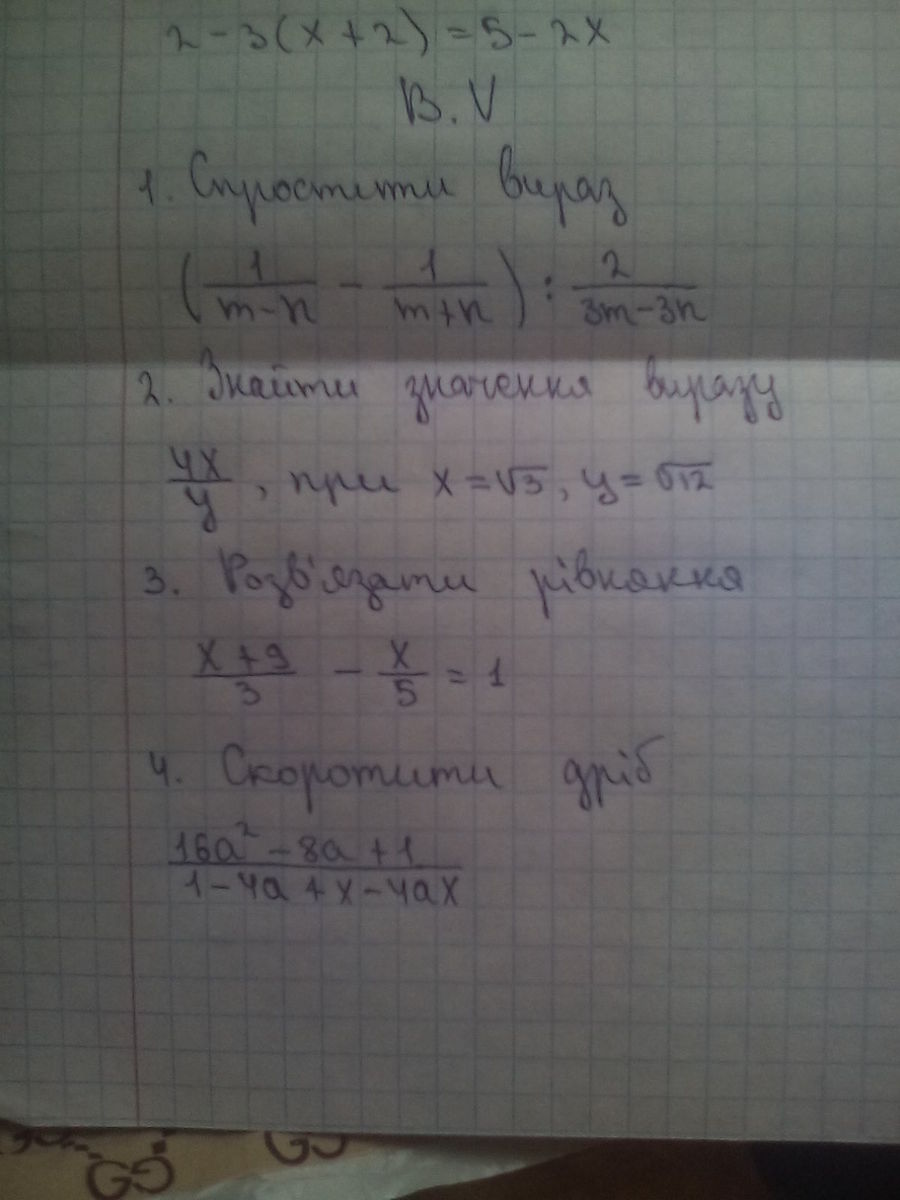 2 - 3(x + 2) = 5 - 2x
В. V
1. Спростити вираз
(1/(m-n) - 1/(m+n)) : 2/(3m-3n)
2. Знайти значення виразу
4x/y, при x = √3, y = √12
3. Розв'язати рівняння
(x+9)/3 - x/5 = 1
4. Скоротити дріб
(16a² - 8a + 1)/(1 - 4a + x - 4ax)